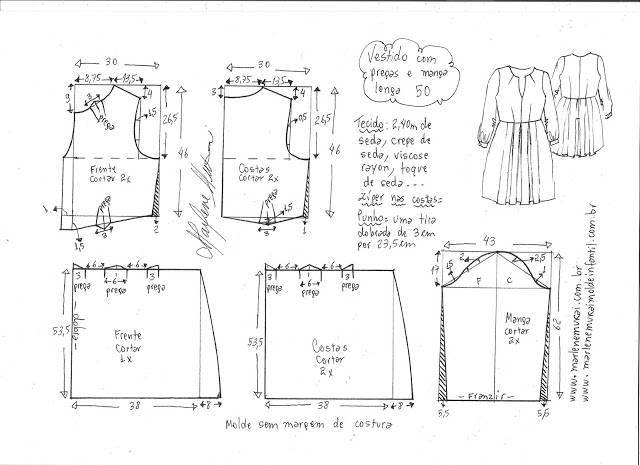 Vestido com
pregas e manga
longa 50
30
8,75 13,5
3
3
prega
4
1,5
26,5
46
Frente
cortar 2x
prega
3
1
1,5
2
Marlene Mukai
30
8,75 13,5
3
4
0,5
26,5
46
Costas
cortar 2x
prega
3
1,5
1
Tecido: 2,40m de
seda, crepe de
seda, viscose
rayon, toque
de seda...
Zíper nas costas.
Punho: uma tira
dobrada de 3 cm
por 23,5 cm
3 6 6 3
prega prega prega
6
53,5
- dobra -
Frente
cortar
1x
38 8
3 6 6 3
prega prega prega
6
53,5
Costas
cortar
2x
38 8
43
17
1,5 2 2,5 1
F C
Manga
cortar
2x
62
- Franzir -
5,5 5,5
www.marlenemukai.com.br
www.marlenemukaimoldeinfantil.com.br
Molde sem margem de costura